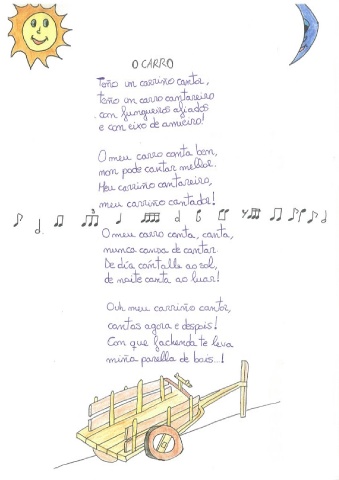 O CARRO
Toño un carriño cantor,
toño un carro cantareiro
con fungueiros afiados
e con eixo de amieiro!
O meu carro canta ben,
non pode cantar mellor.
Meu carriño cantareiro,
meu carriño cantador!
O meu carro canta, canta,
nunca cansa de cantar
De día cántalle ao sol,
de noite canta ao luar!
Ouh meu carriño cantor,
cantas agora e despois!
Con que fachenda te leva
miña parella de bois...!